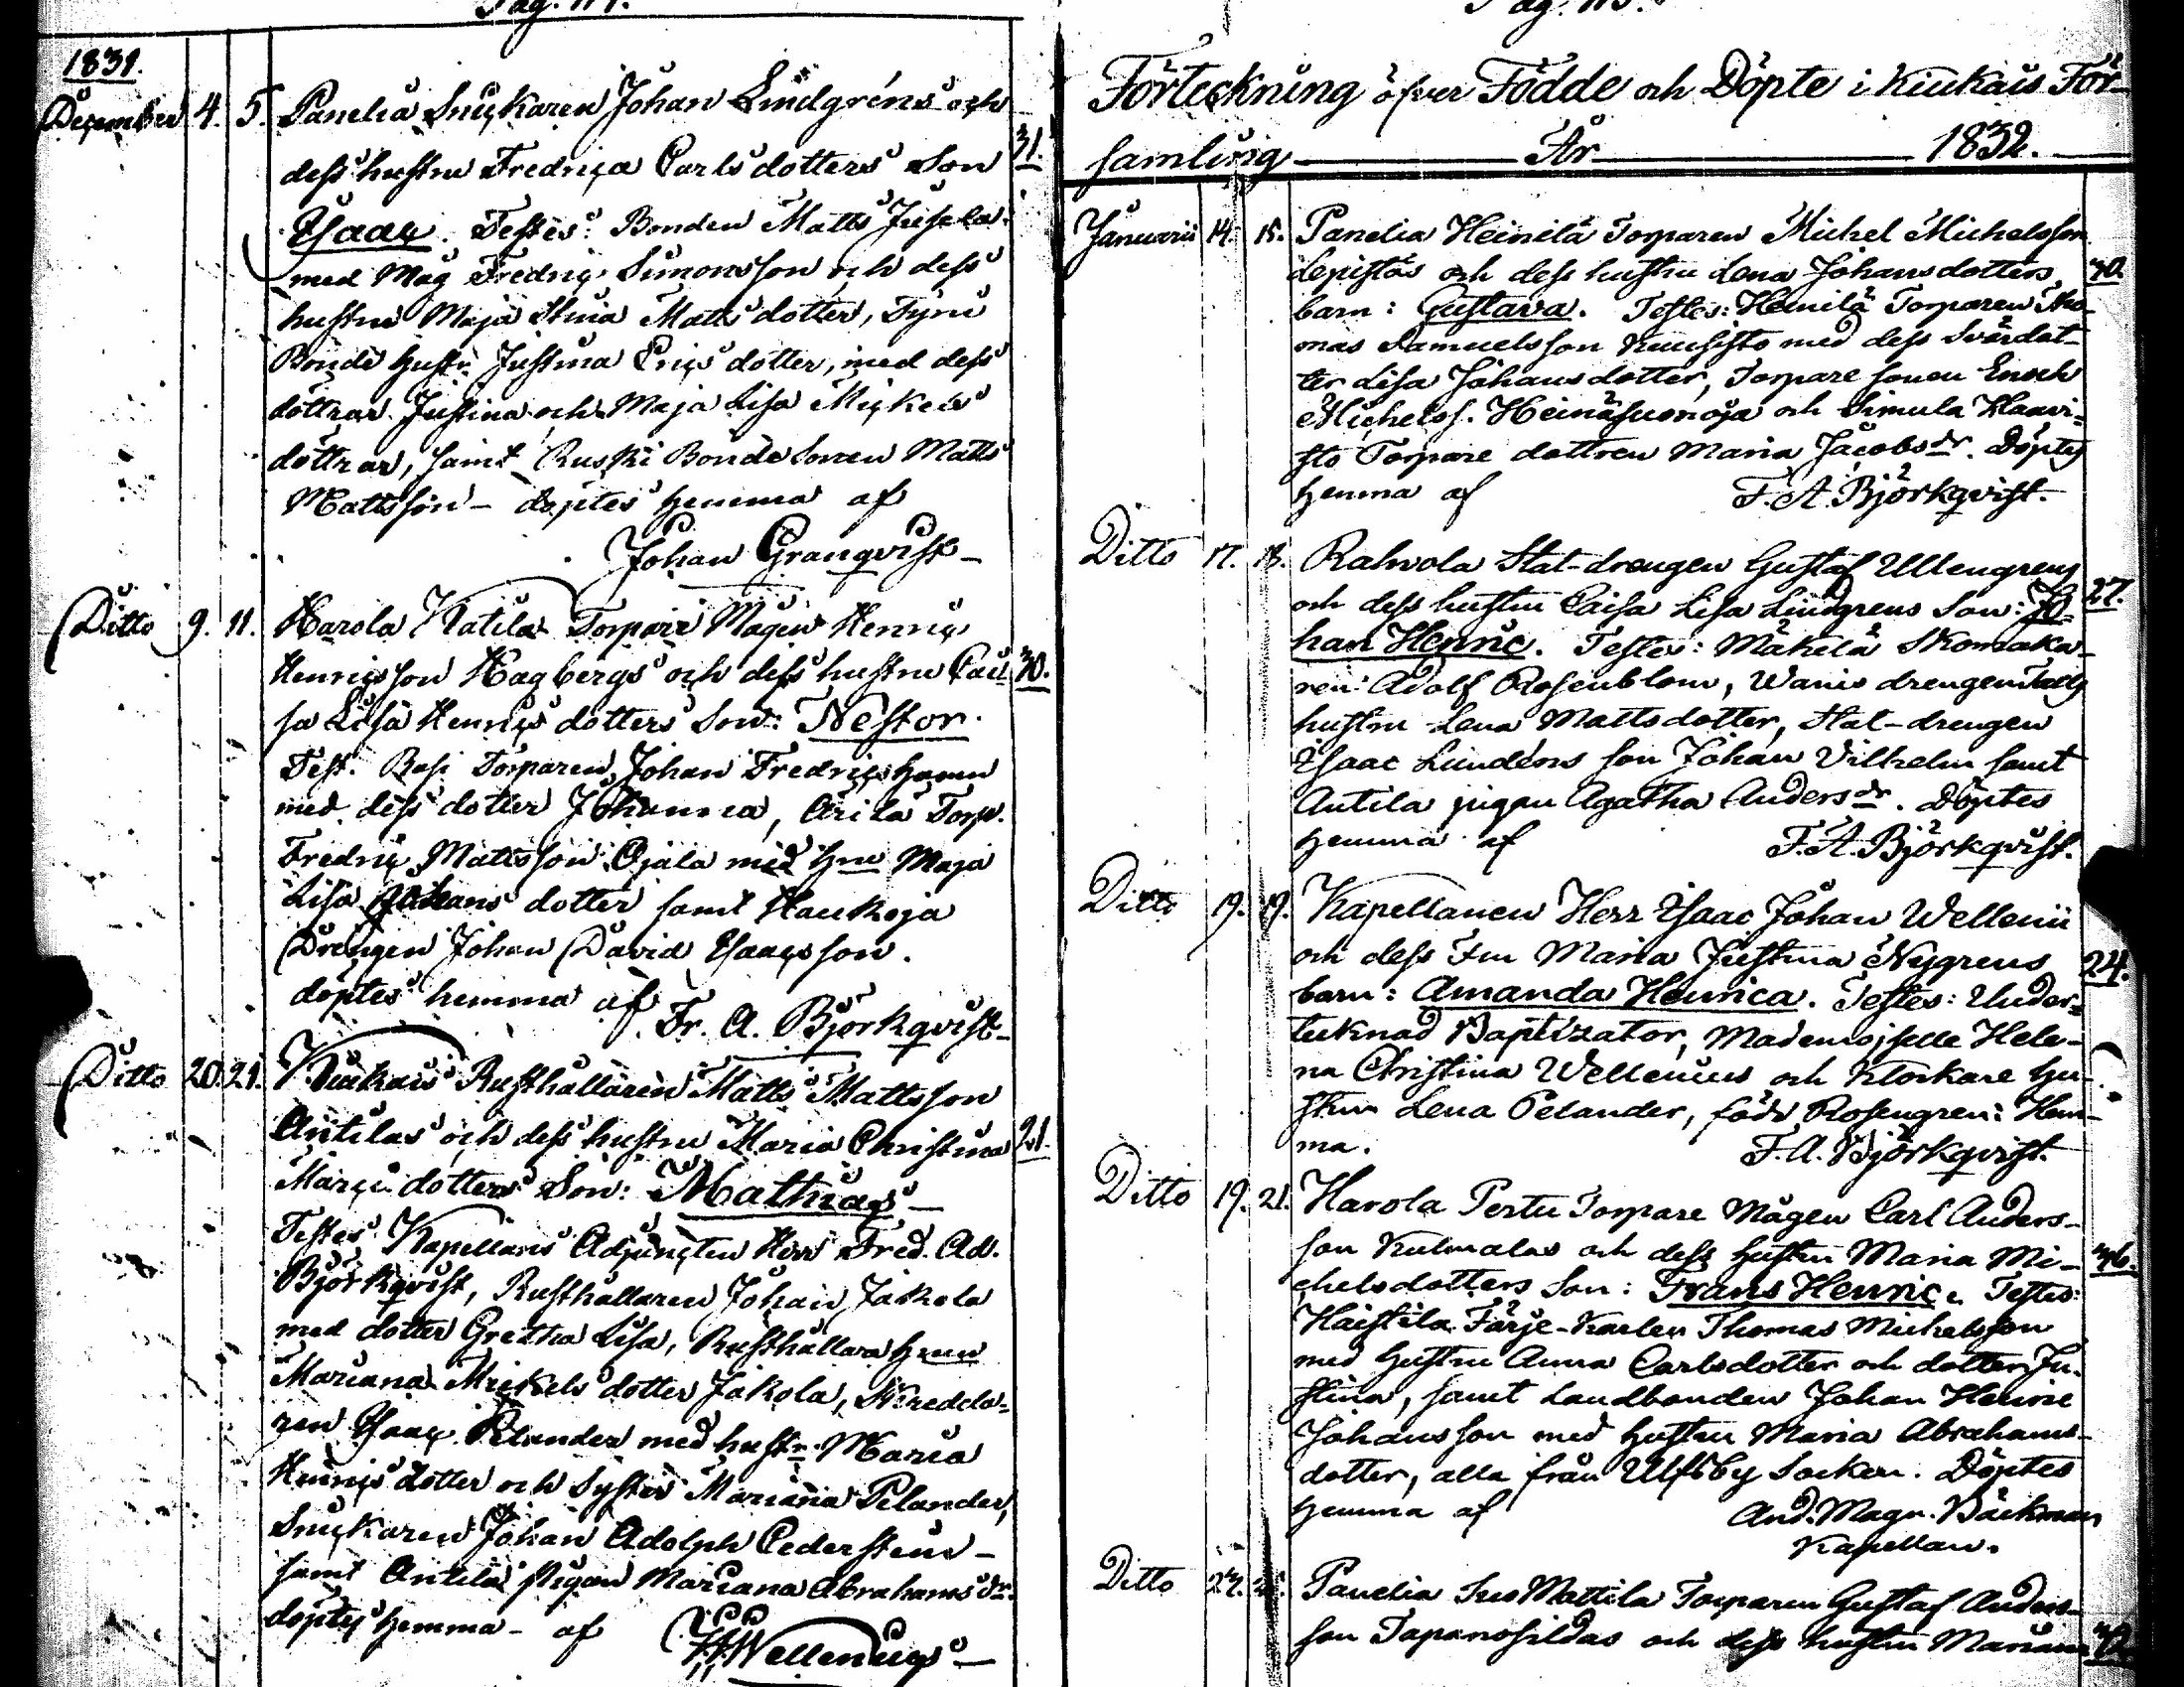 Pag. 114.
1831.
December 4. 5. Panelia Snickaren Johan Lindgréns och
dess hustru Fredrica Carlsdotters Son 31.
Isaac. Testes: Bonden Matts
med Måg Fredric Simonsson och dess
hustru Maja Stina Matts dotter,
Bonde hustr. Justina Erics dotter, med dess
döttrar Justina och Maja Lisa Mickels
döttrar, samt Ruski Bonde Sonen Matts
Mattsson – döptes hemma af
Johan Granqvist –
Ditto 9. 11. Harola Katila Torpare Mågen Henric
Henricsson Hagbergs och dess hustru Cai- 30.
sa Lisa Henrics dotters Son: Nestor.
Test. Rasi Torparen Johan Fredric
med dess dotter Johanna, Arila Torp.
Fredric Mattsson Ojala med hru Maja
Lisa Johans dotter samt Haukoja
Drengen Johan David Isaacsson.
döptes hemma af
Fr. A. Björkqvist –
Ditto 20. 21. Kiukais Rusthållaren Matts Mattsson
Antilas och dess hustru Maria Christina 21.
Marci dotters Son: Mathias –
Testes Kapellans Adjuncten Herr Fred. Ad.
Björkqvist, Rusthållaren Johan Jakola
med dotter Gretha Lisa, Rusthållara hrun
Mariana Mickels dotter Jakola, Skredda-
ren Isaac Pelander med hustr. Maria
Henrics dotter och Syster Mariana Pelander,
Snickaren Johan Adolph Cederstens –
samt Antila Pigan Mariana Abrahams dr.
döptes hemma – af
Wellenius –
Pag. 115.
Förteckning öfver Födde och Döpte i Kiukais För-
samling År 1832.
Januarii 14. 15. Panelia Heinilä Torparen Michel Michelsson
Lepistös och dess hustru Lena Johansdotters 40.
barn: Gustava. Testes: Heinilä Torparen Tho-
mas Samuelsson Kuusisto med dess Svärdot-
ter Lisa Johansdotter, Torpare sonen Enoch
Michelss. Heinäsuonoja och Simula Haavi-
sto Torpare dottren Maria Jacobsdr. Döptes
hemma af F. A. Björkqvist.
Ditto 17. 18. Rahvola Stat-drengen Gustaf Ullengrens
och dess hustru Caisa Lisa Lindgrens Son: Jo- 27.
han Henric. Testes: Mäkelä Skomaka-
ren Adolf Rosenblom, Wanis drengen
hustru Lena Mattsdotter, Stat-drengen
Isaac Lundéns son Johan Vilhelm samt
Antila pigan Agatha Andersdr. Döptes
hemma af F. A. Björkqvist.
Ditto 19. 19. Kapellanen Herr Isaac Johan Wellenii
och dess Fru Maria Justina Nygrens 24.
barn: Amanda Henrica. Testes: Under-
tecknad Baptizator, Mademoiselle Hele-
na Christina Wellenius och Klockare hu-
strun Lena Pelander, född Rosengren: Hem-
ma. F. A. Björkqvist.
Ditto 19. 21. Harola Pertu Torpare Mågen Carl Anders-
son Kulmalas och dess hustru Maria Mi- 46.
chelsdotters Son: Frans Henric. Testes:
Haistila Färje-Karlen Thomas Michelsson
med hustru Anna Carlsdotter och dotter Ju-
stina, samt Landbonden Johan Henric
Johansson med hustru Maria Abrahams-
dotter, alla från Ulfsby Socken. Döptes
hemma af And. Magn. Bäckman
Kapellan.
Ditto Panelia Mattila Torparen Gustaf Anders-
son Tapanosildas och dess hustru Mariana 42.